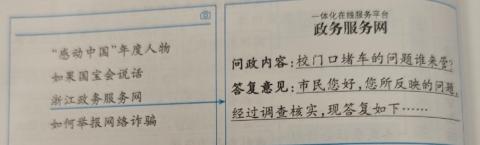 “感动中国”年度人物
如果国宝会说话
浙江政务服务网
如何举报网络诈骗
一体化在线服务平台
政务服务网
问政内容:校门口堵车的问题谁来管?
答复意见:市民您好,您所反映的问题,
经过调查核实,现答复如下……